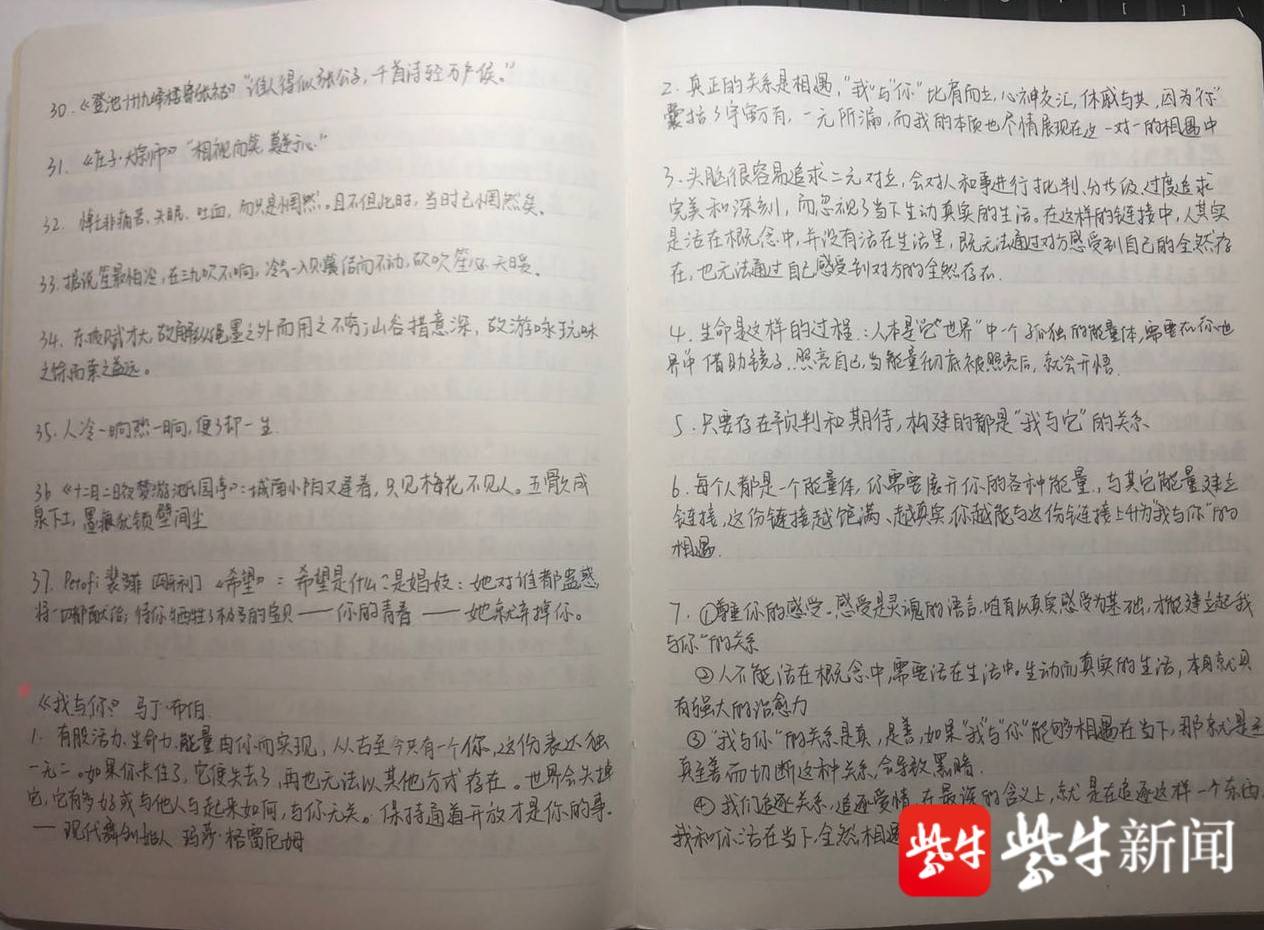 30.《登池州九峰楼寄张祜》"谁人得似张公子，千首诗轻万户侯。"
31.《庄子·大宗师》"相视而笑，莫逆于心"
32. 悼亡非痛苦、失眠、吐血，而只是惘然。且不但此时，当时已惘然矣。
33. 据说笙最怕冷，在三九吹不响，冷气一入则簧结而不动，故吹笙必天暖。
34. 东坡赋才大，故解纵绳墨之外而用之不穷；山谷措意深，故游咏玩味
之馀而索之益远。
35. 人冷一晌热一晌，便了却一生.
36《十二月二日夜梦游沈氏园亭》：城南小陌又逢春，只见梅花不见人。玉骨久成
泉下土，墨痕犹锁壁间尘
37. Petofi 裴多菲 匈牙利《希望》：希望是什么？是娼妓：她对谁都蛊惑，
将一切都献给；待你牺牲了极多的宝贝——你的青春——她就弃掉你。
《我与你》马丁·布伯.
1. 有股活力、生命力、能量由你而实现，从古至今只有一个你，这份表达独
一无二。如果你卡住了，它便失去了，再也无法以其他方式存在。世界会失掉
它，它有多好或与他人比起来如何，与你无关。保持通道开放才是你的事.
—— 现代舞创始人 玛莎·格雷厄姆
2. 真正的关系是相遇，"我"与"你"比肩而立，心神交汇，休戚与共，因为"你"
囊括了宇宙万有，一无所漏，而我的本质也尽情展现在这一对一的相遇中
3. 头脑很容易追求二元对立，会对人和事进行批判、分等级，过度追求
完美和深刻，而忽视了当下生动真实的生活。在这样的链接中，人其实
是活在概念中，并没有活在生活里，既无法通过对方感受到自己的全然存
在，也无法通过自己感受到对方的全然存在.
4. 生命是这样的过程：人本是"它世界"中一个孤独的能量体，需要在"你世
界"中借助镜子，照亮自己，当能量彻底被照亮后，就会开悟.
5. 只要存在预判和期待，构建的都是"我与它"的关系
6. 每个人都是一个能量体，你需要展开你的各种能量，与其它能量建立
链接，这份链接越饱满、越真实，你越能与这份链接上升为"我与你"的
相遇.
7. ①尊重你的感受。感受是灵魂的语言，唯有以真实感受为基础，才能建立起"我
与你"的关系
②人不能活在概念中，需要活在生活中。生动而真实的生活，本身就具
有强大的治愈力
③"我与你"的关系是真，是善，如果"我"与"你"能够相遇在当下，那就是至
真至善而切断这种关系，会导致黑暗.
④我们追逐关系，追逐爱情，在最深的含义上，就是在追逐这样一个东西，
我和你活在当下，全然相遇
紫牛 紫牛新闻